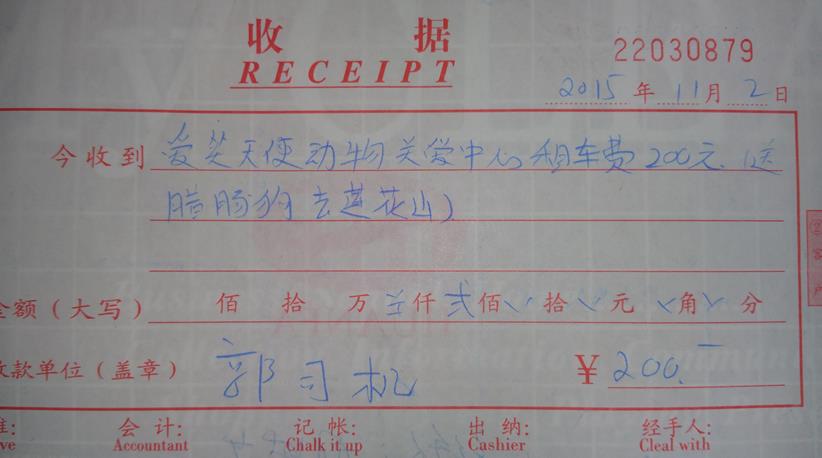 收 据
RECEIPT
22030879
2015 年 11 月 2 日
今收到 爱笑天使动物关爱中心租车费200元.(送
腊肠狗去莲花山)
金额(大写) 佰 拾 万 仟 贰 佰 拾 元 角 分
收款单位(盖章) 郭司机 ¥ 200.—
准: 会 计: 记 帐: 出 纳: 经手人:
ve Accountant Chalk it up Cashier Cleal with
客户